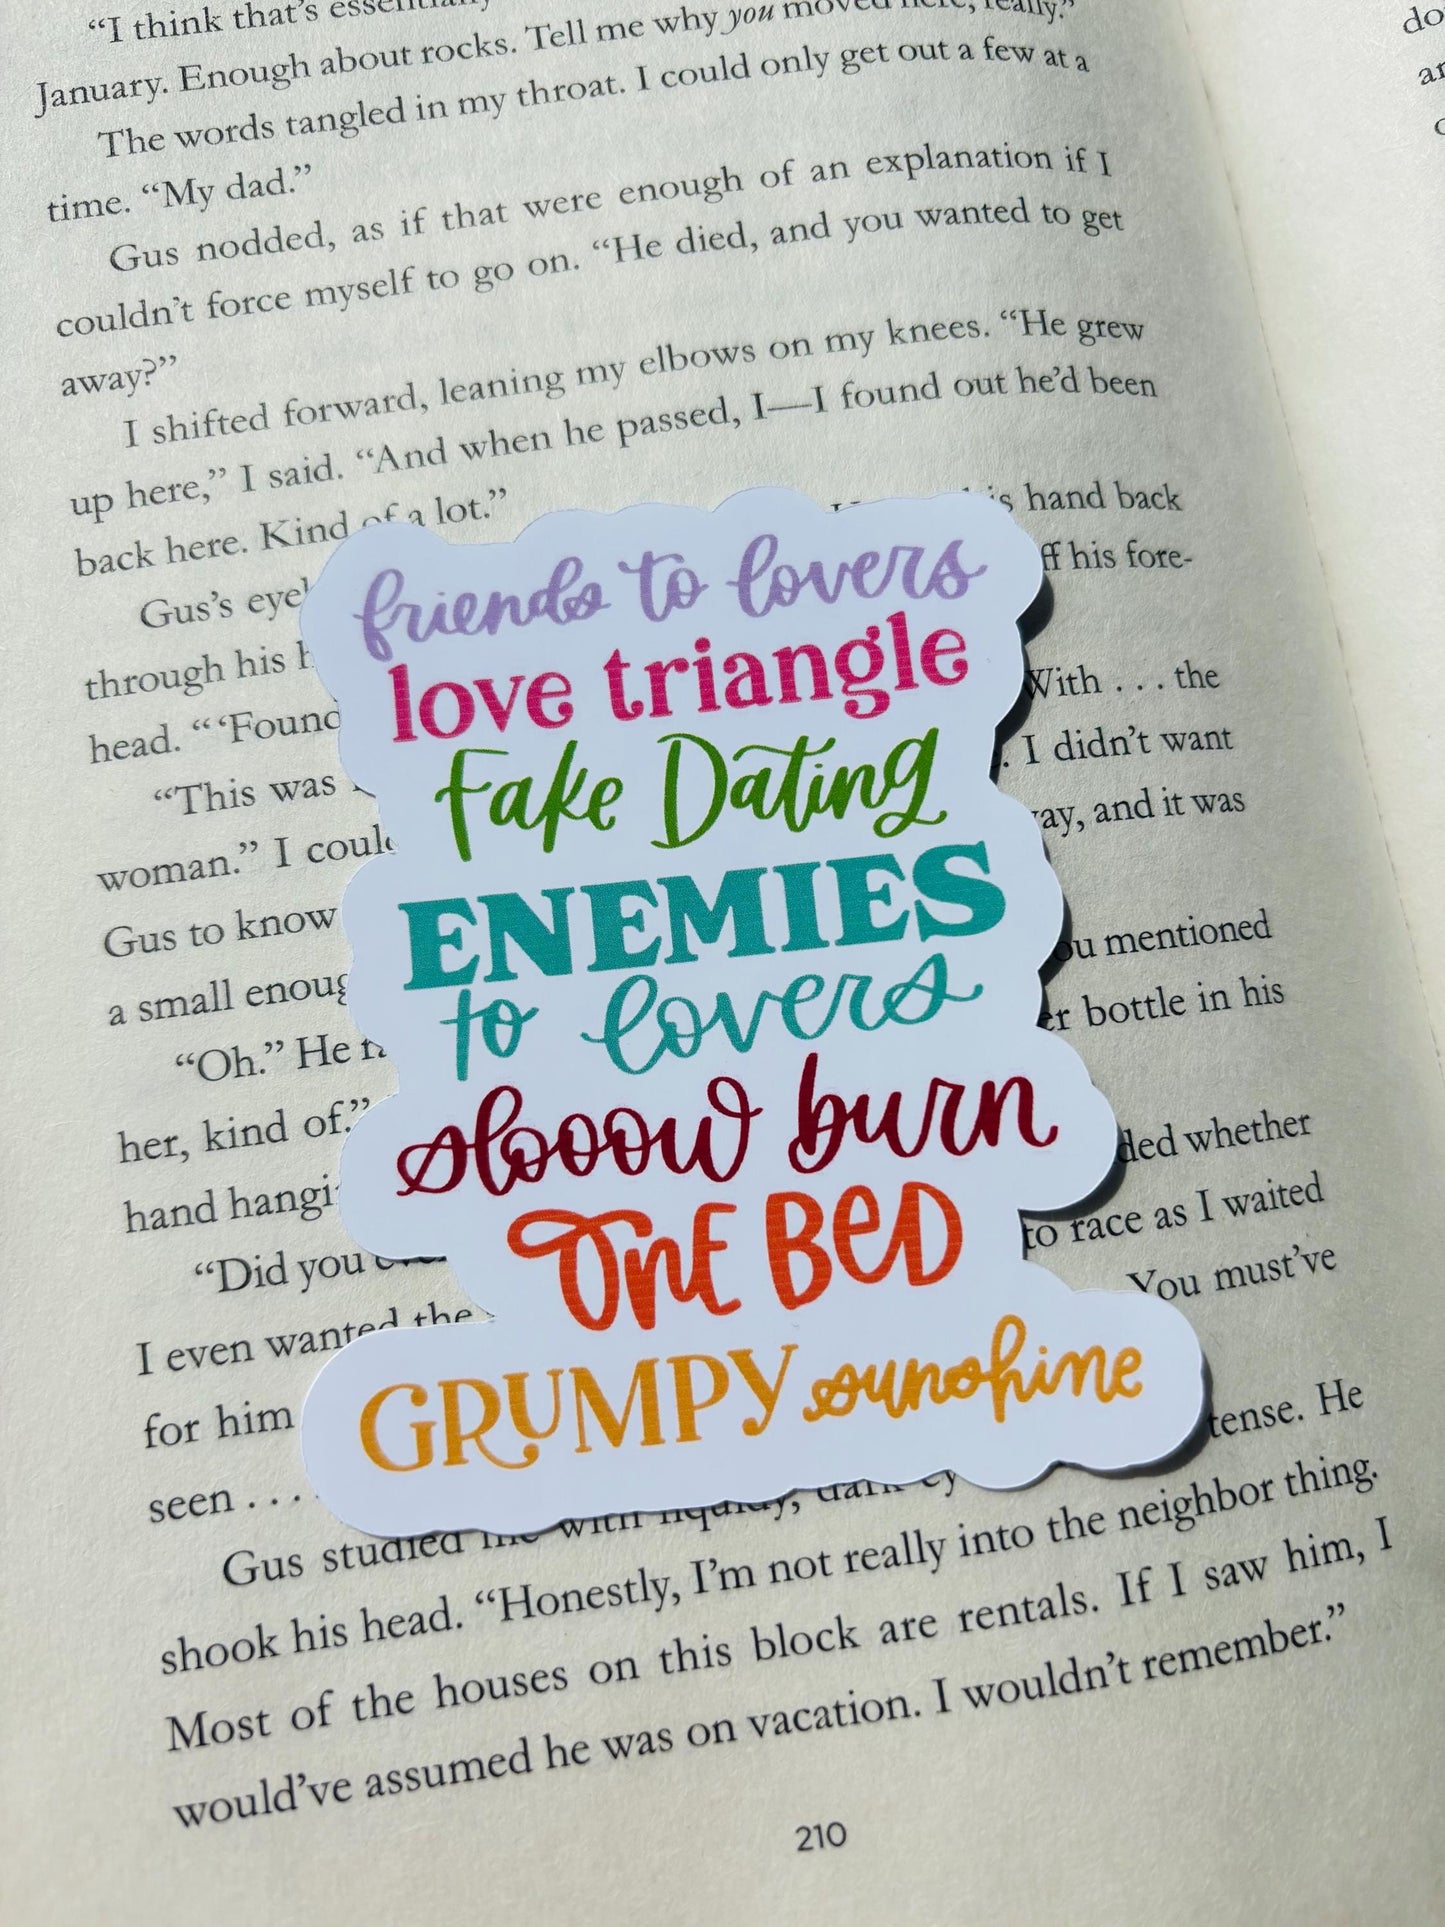 “I think that’s essentially
January. Enough about rocks. Tell me why you moved here, really.”
The words tangled in my throat. I could only get out a few at a
time. “My dad.”
Gus nodded, as if that were enough of an explanation if I
couldn’t force myself to go on. “He died, and you wanted to get
away?”
I shifted forward, leaning my elbows on my knees. “He grew
up here,” I said. “And when he passed, I—I found out he’d been
back here. Kind of a lot.”
Gus’s hand back
through his ff his fore-
head. “ ‘Found With . . . the
“This was I didn’t want
woman.” I and it was
Gus to know
a small mentioned
“Oh.” He bottle in his
her, kind of.”
hand whether
“Did you to race as I waited
I even wanted the You must’ve
for him
seen . . . tense. He
Gus studied me with
shook his head. “Honestly, I’m not really into the neighbor thing.
Most of the houses on this block are rentals. If I saw him, I
would’ve assumed he was on vacation. I wouldn’t remember.”
210
friends to lovers
love triangle
Fake Dating
ENEMIES
to lovers
slooow burn
ONE BED
GRUMPY sunshine